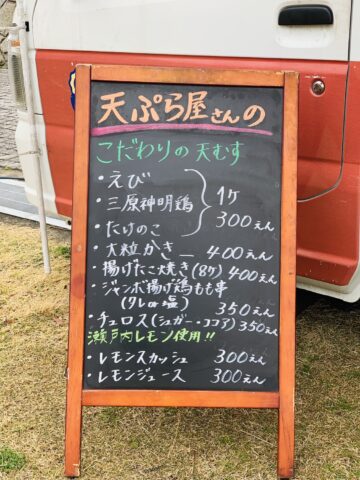 天ぷら屋さんの
こだわりの天むす
・えび
・三原神明鶏
・たけのこ
1ヶ
300えん
・大粒かき ー 400えん
・揚げたこ焼き(8ヶ) 400えん
・ジャンボ揚げ鶏もも串
(タレor塩) 350えん
・チュロス(シュガー・ココア)350えん
瀬戸内レモン使用!!
・レモンスカッシュ 300えん
・レモンジュース 300えん